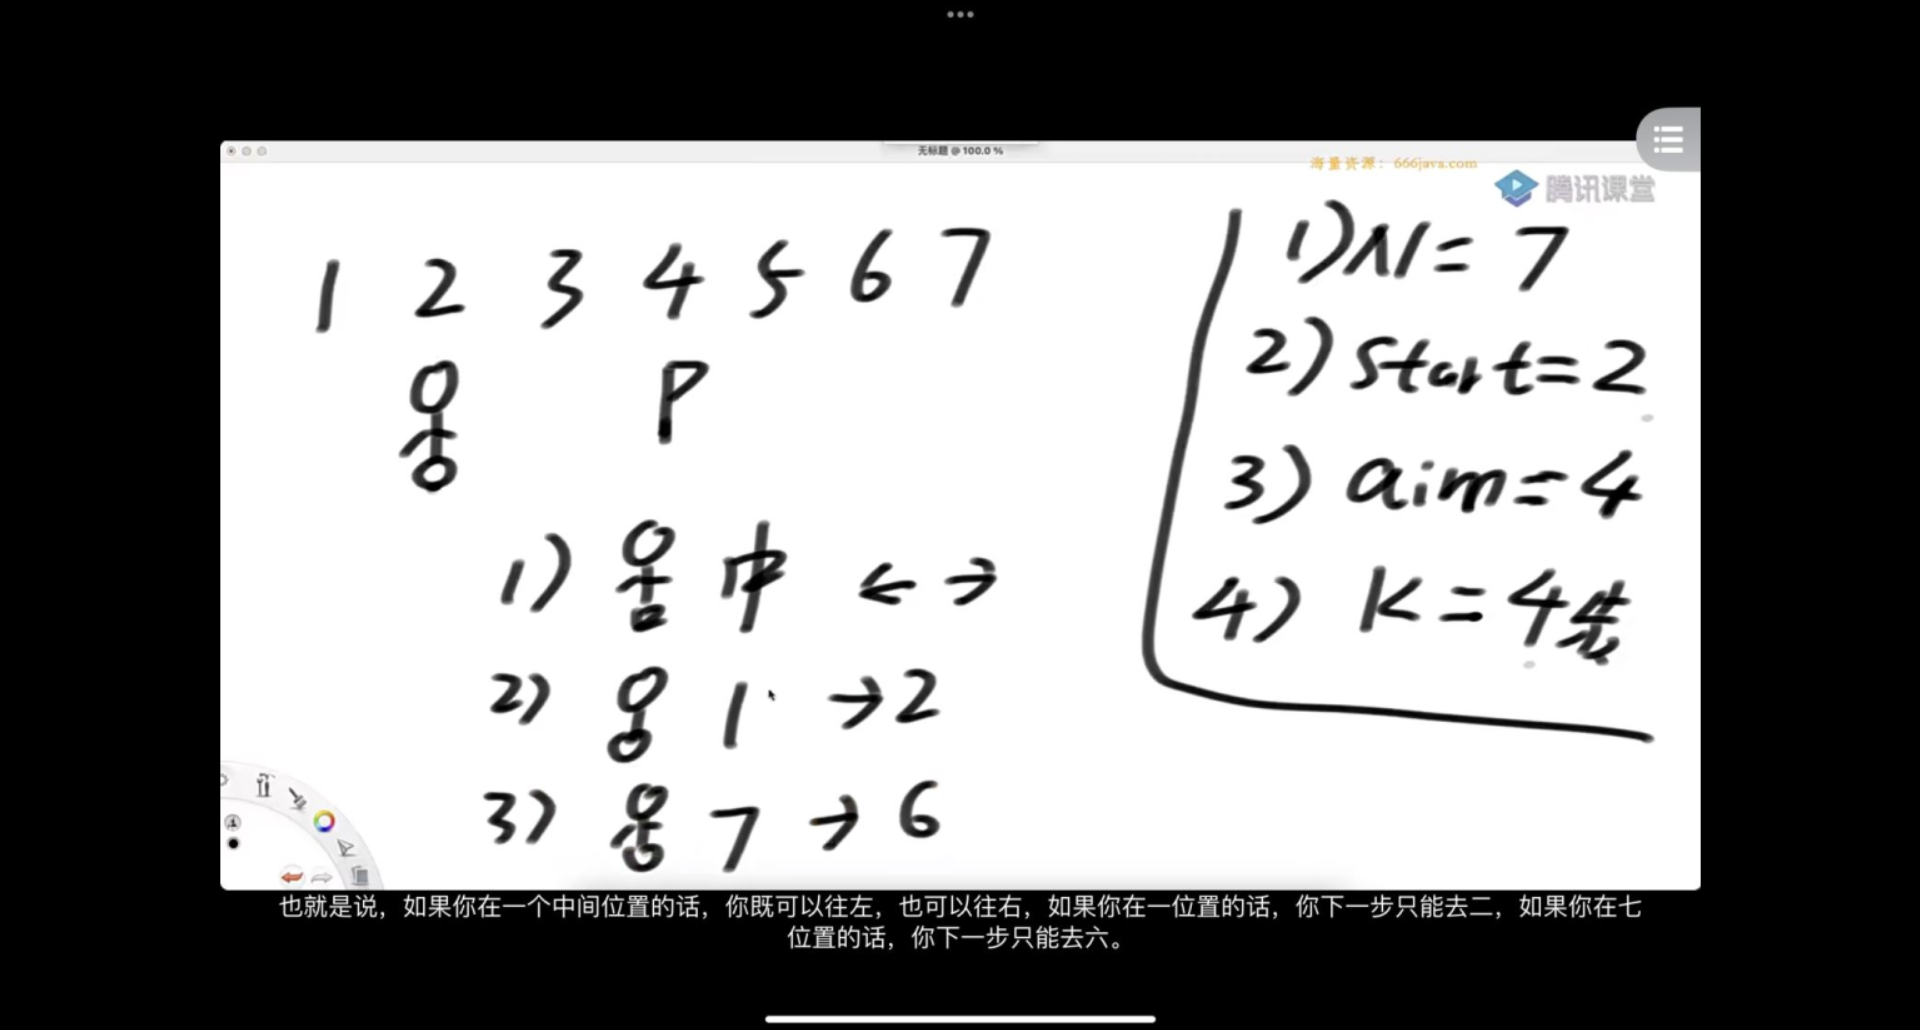 无标题 @ 100.0 %
海量资源：666java.com
腾讯课堂
1 2 3 4 5 6 7
P
1) 中 ← →
2) 1 → 2
3) 7 → 6
1) N = 7
2) start = 2
3) aim = 4
4) K = 4步
也就是说，如果你在一个中间位置的话，你既可以往左，也可以往右，如果你在一位置的话，你下一步只能去二，如果你在七
位置的话，你下一步只能去六。